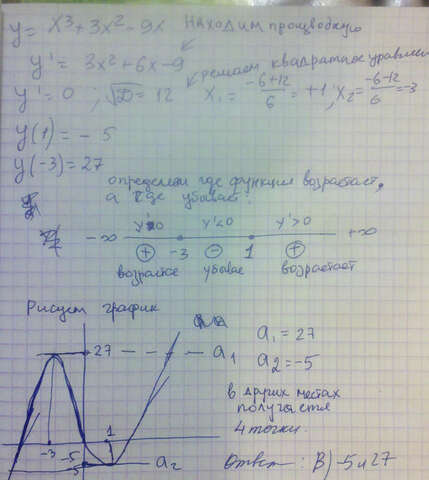 y = x³ + 3x² - 9x Находим производную
y' = 3x² + 6x - 9
решаем квадратное уравнен
y' = 0 ; √D = 12 x₁ = (-6+12)/6 = +1 ; x₂ = (-6-12)/6 = -3
y(1) = - 5
y(-3) = 27
определяем где функция возрастает,
а где убывает:
y'>0 y'<0 y'>0
-∞ -3 1 +∞
+ - +
возрастае убывае возрастает
Рисуем график
27 a₁
a₁ = 27
a₂ = -5
в других местах
получается
4 точки.
-3 -5 1
-5 a₂
Ответ: В) -5 и 27